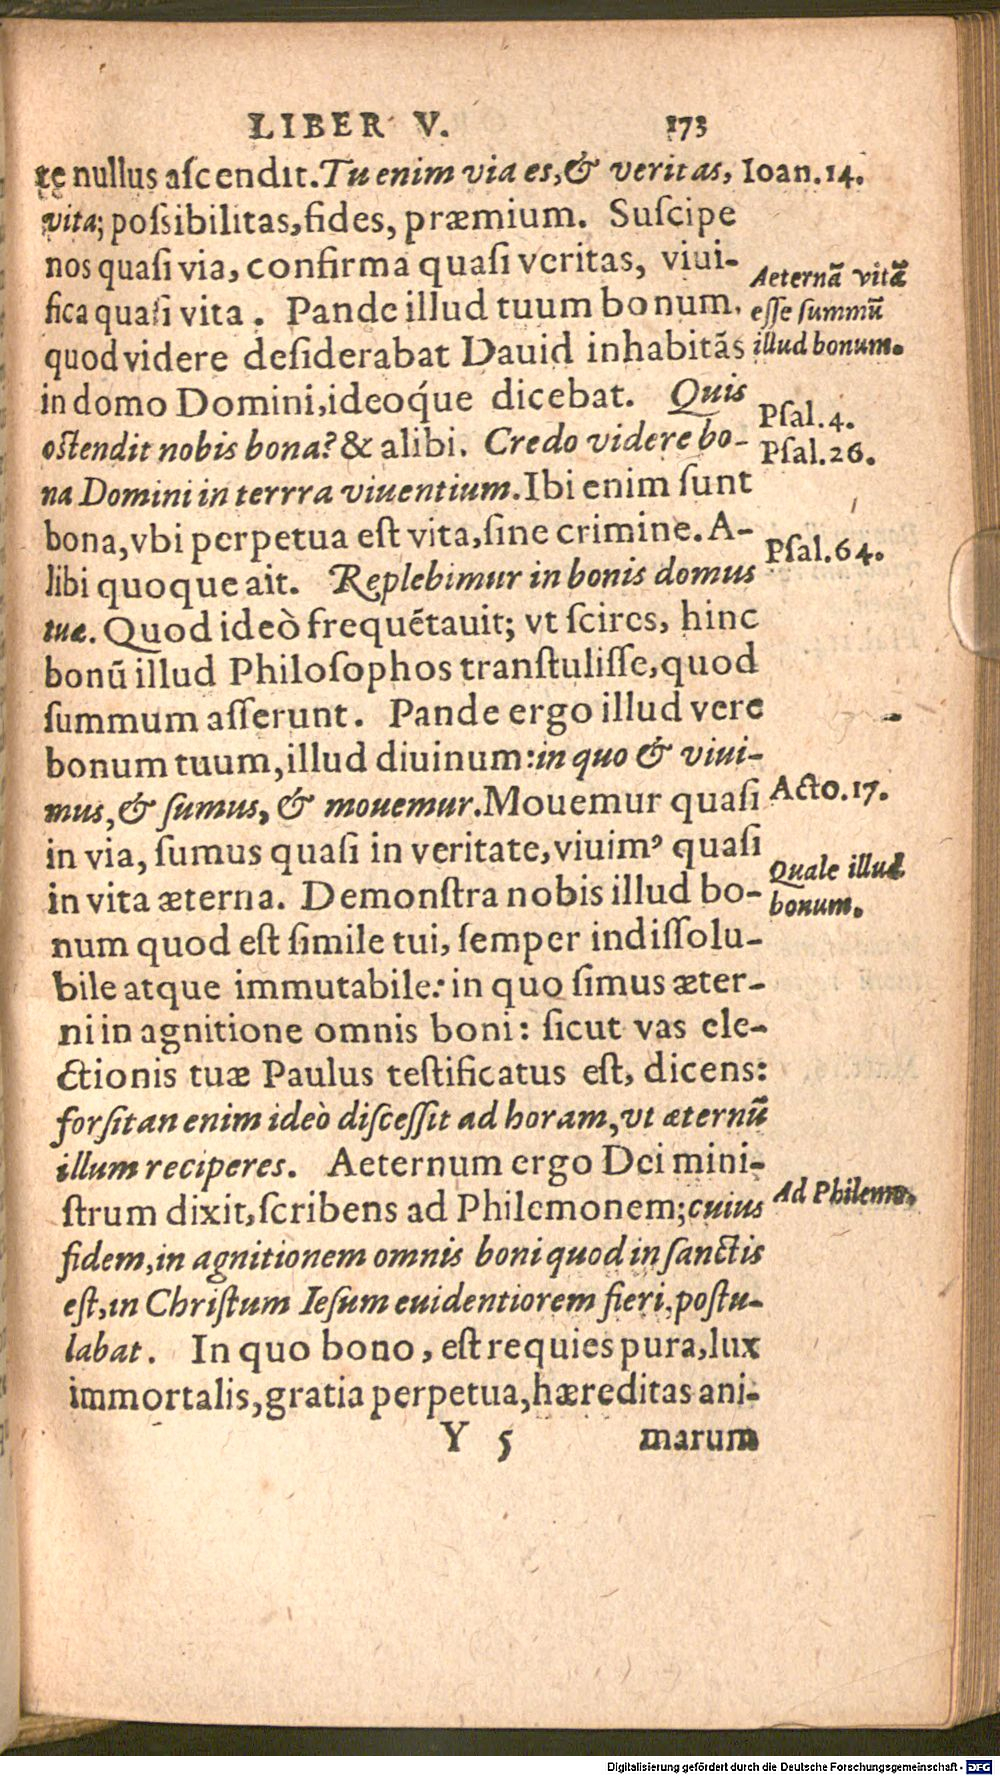 LIBER V. 173
te nullus aſcendit. Tu enim via es, & veritas,
vita; poſsibilitas, fides, præmium. Suſcipe
nos quaſi via, confirma quaſi veritas, viui-
fica quaſi vita. Pande illud tuum bonum,
quod videre deſiderabat Dauid inhabitãs
in domo Domini, ideoq́ue dicebat. Quis
oſtendit nobis bona? & alibi. Credo videre bo-
na Domini in terrra viuentium. Ibi enim ſunt
bona, vbi perpetua eſt vita, ſine crimine. A-
libi quoque ait. Replebimur in bonis domus
tuæ. Quod ideò frequẽtauit; vt ſcires, hinc
bonũ illud Philoſophos tranſtuliſſe, quod
ſummum aſſerunt. Pande ergo illud vere
bonum tuum, illud diuinum: in quo & viui-
mus, & ſumus, & mouemur. Mouemur quaſi
in via, ſumus quaſi in veritate, viuimꝰ quaſi
in vita æterna. Demonſtra nobis illud bo-
num quod eſt ſimile tui, ſemper indiſſolu-
bile atque immutabile: in quo ſimus æter-
ni in agnitione omnis boni: ſicut vas ele-
ctionis tuæ Paulus teſtificatus eſt, dicens:
forſitan enim ideò diſceſſit ad horam, vt æternũ
illum reciperes. Aeternum ergo Dei mini-
ſtrum dixit, ſcribens ad Philemonem; cuius
fidem, in agnitionem omnis boni quod in ſanctis
eſt, in Chriſtum Ieſum euidentiorem fieri, poſtu-
labat. In quo bono, eſt requies pura, lux
immortalis, gratia perpetua, hæreditas ani-
Y 5 marum
Ioan. 14.
Aeternã vitã
eſſe ſummũ
illud bonum.
Pſal. 4.
Pſal. 26.
Pſal. 64.
Acto. 17.
Quale illud
bonum.
Ad Philemo.
Digitalisierung gefördert durch die Deutsche Forschungsgemeinschaft - DFG